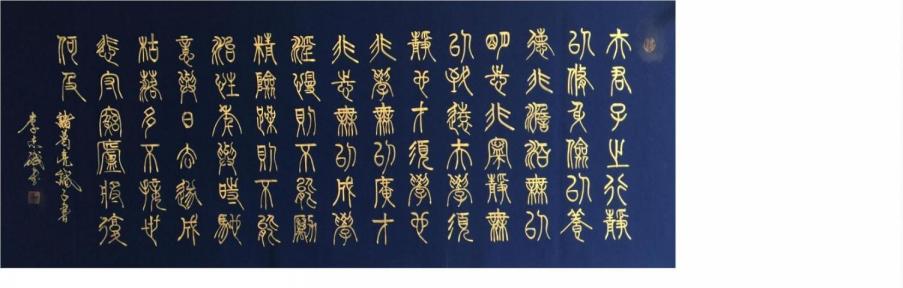 夫君子之行靜
以修身儉以養
德非澹泊無以
明志非寧靜無
以致遠夫學須
靜也才須學也
非學無以廣才
非志無以成學
淫慢則不能勵
精險躁則不能
治性年與時馳
意與日去遂成
枯落多不接世
悲守窮廬將復
何及
諸葛亮誡子書
李志